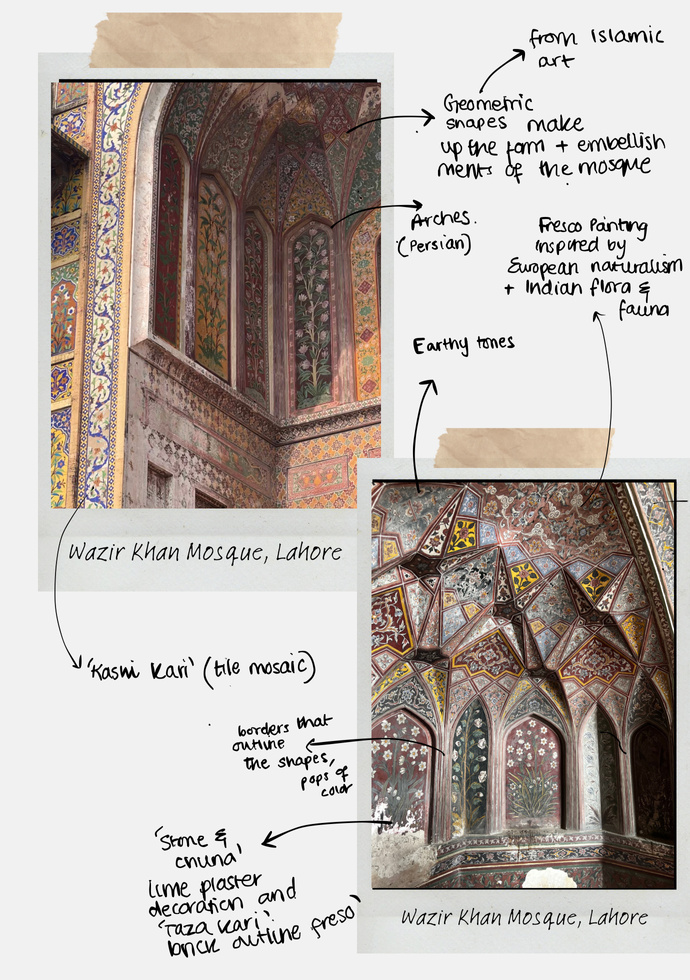 from Islamic
art
Geometric
shapes make
up the form + embellish
ments of the mosque
Arches.
(Persian)
Fresco Painting
inspired by
European naturalism
+ Indian flora &
fauna
Earthy tones
Wazir Khan Mosque, Lahore
'Kashi Kari' (tile mosaic)
borders that
outline
the shapes,
pops of
color
'Stone &
chuna,
lime plaster
decoration and
'Taza Kari'.
brick outline freso'
Wazir Khan Mosque, Lahore